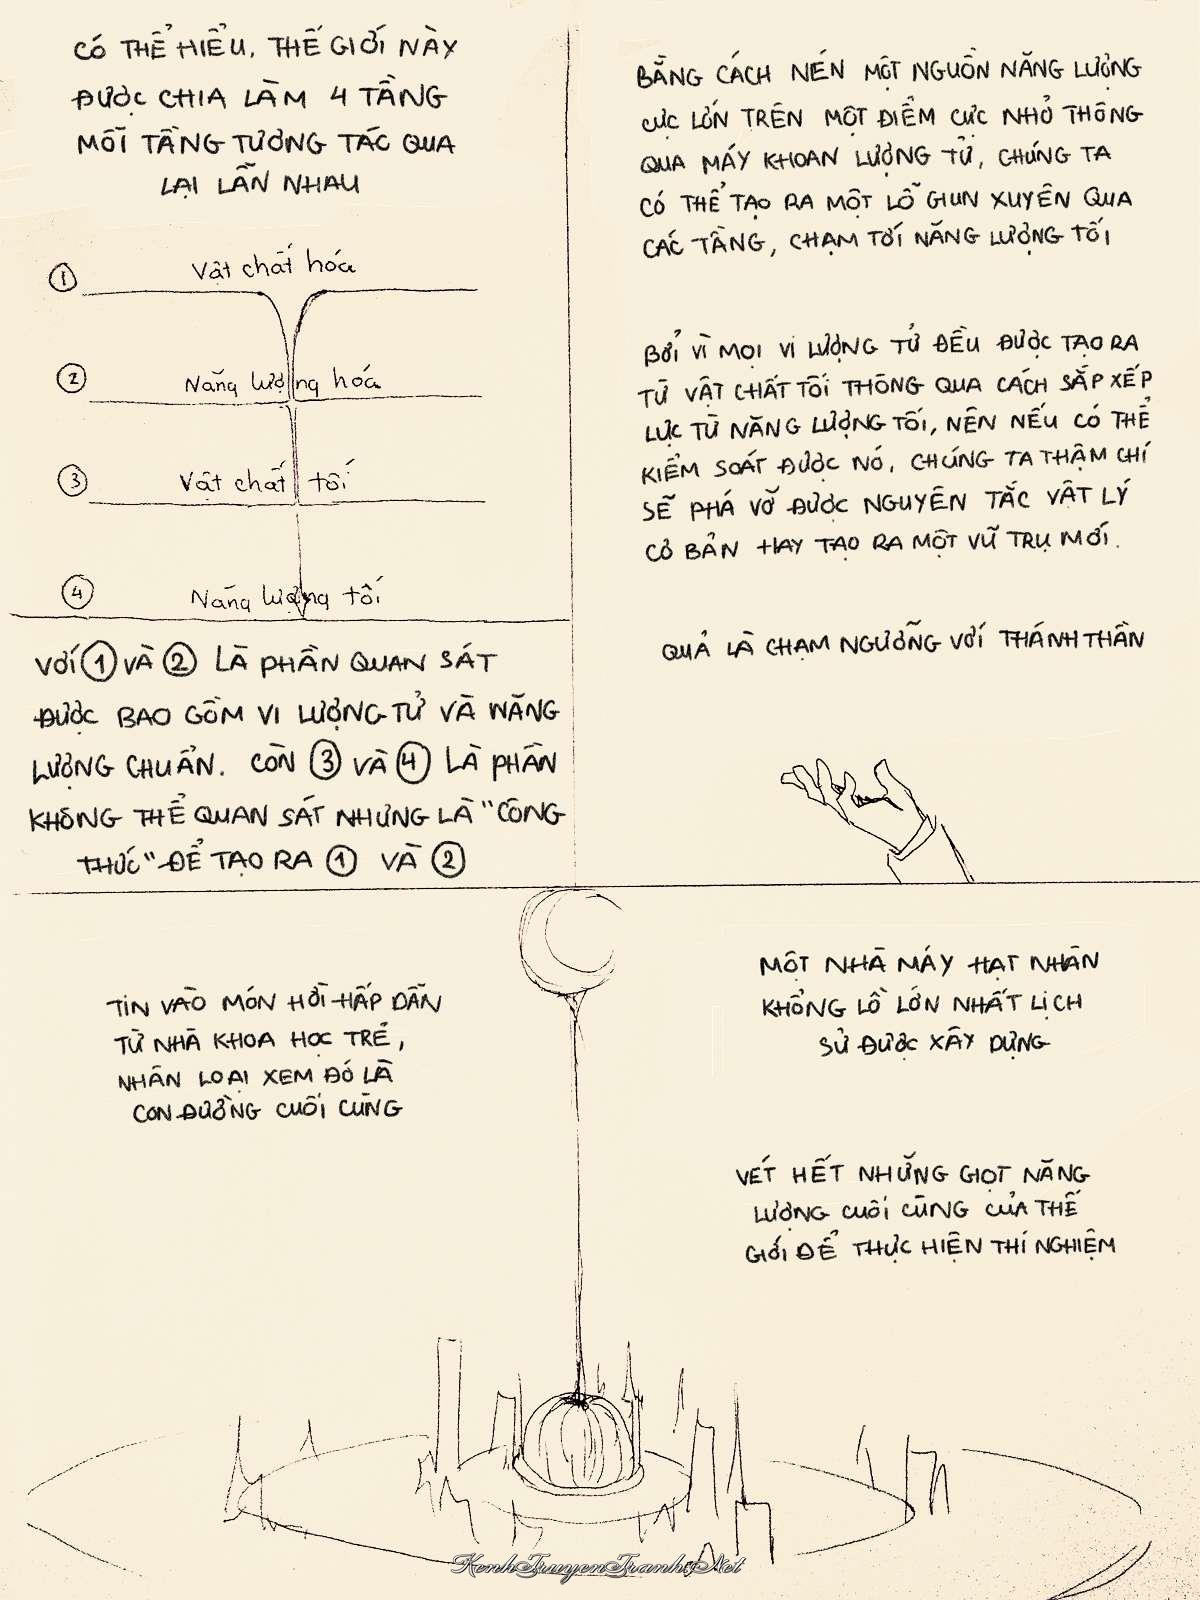 CÓ THỂ HIỂU. THẾ GIỚI NÀY
ĐƯỢC CHIA LÀM 4 TẦNG
MỖI TẦNG TƯƠNG TÁC QUA
LẠI LẪN NHAU
① Vật chất hóa
② Năng lượng hóa
③ Vật chất tối
④ Năng lượng tối
VỚI ① VÀ ② LÀ PHẦN QUAN SÁT
ĐƯỢC BAO GỒM VI LƯỢNG TỬ VÀ NĂNG
LƯỢNG CHUẨN. CÒN ③ VÀ ④ LÀ PHẦN
KHÔNG THỂ QUAN SÁT NHƯNG LÀ "CÔNG
THỨC" ĐỂ TẠO RA ① VÀ ②
BẰNG CÁCH NÉN MỘT NGUỒN NĂNG LƯỢNG
CỰC LỚN TRÊN MỘT ĐIỂM CỰC NHỎ THÔNG
QUA MÁY KHOAN LƯỢNG TỬ, CHÚNG TA
CÓ THỂ TẠO RA MỘT LỖ GIUN XUYÊN QUA
CÁC TẦNG, CHẠM TỚI NĂNG LƯỢNG TỐI
BỞI VÌ MỌI VI LƯỢNG TỬ ĐỀU ĐƯỢC TẠO RA
TỪ VẬT CHẤT TỐI THÔNG QUA CÁCH SẮP XẾP
LỰC TỪ NĂNG LƯỢNG TỐI, NÊN NẾU CÓ THỂ
KIỂM SOÁT ĐƯỢC NÓ, CHÚNG TA THẬM CHÍ
SẼ PHÁ VỠ ĐƯỢC NGUYÊN TẮC VẬT LÝ
CƠ BẢN HAY TẠO RA MỘT VŨ TRỤ MỚI.
QUẢ LÀ CHẠM NGƯỠNG VỚI THÁNH THẦN
TIN VÀO MÓN HỜI HẤP DẪN
TỪ NHÀ KHOA HỌC TRẺ,
NHÂN LOẠI XEM ĐÓ LÀ
CON ĐƯỜNG CUỐI CÙNG
MỘT NHÀ MÁY HẠT NHÂN
KHỔNG LỒ LỚN NHẤT LỊCH
SỬ ĐƯỢC XÂY DỰNG
VÉT HẾT NHỮNG GIỌT NĂNG
LƯỢNG CUỐI CÙNG CỦA THẾ
GIỚI ĐỂ THỰC HIỆN THÍ NGHIỆM
KenhTruyenTranh.Net